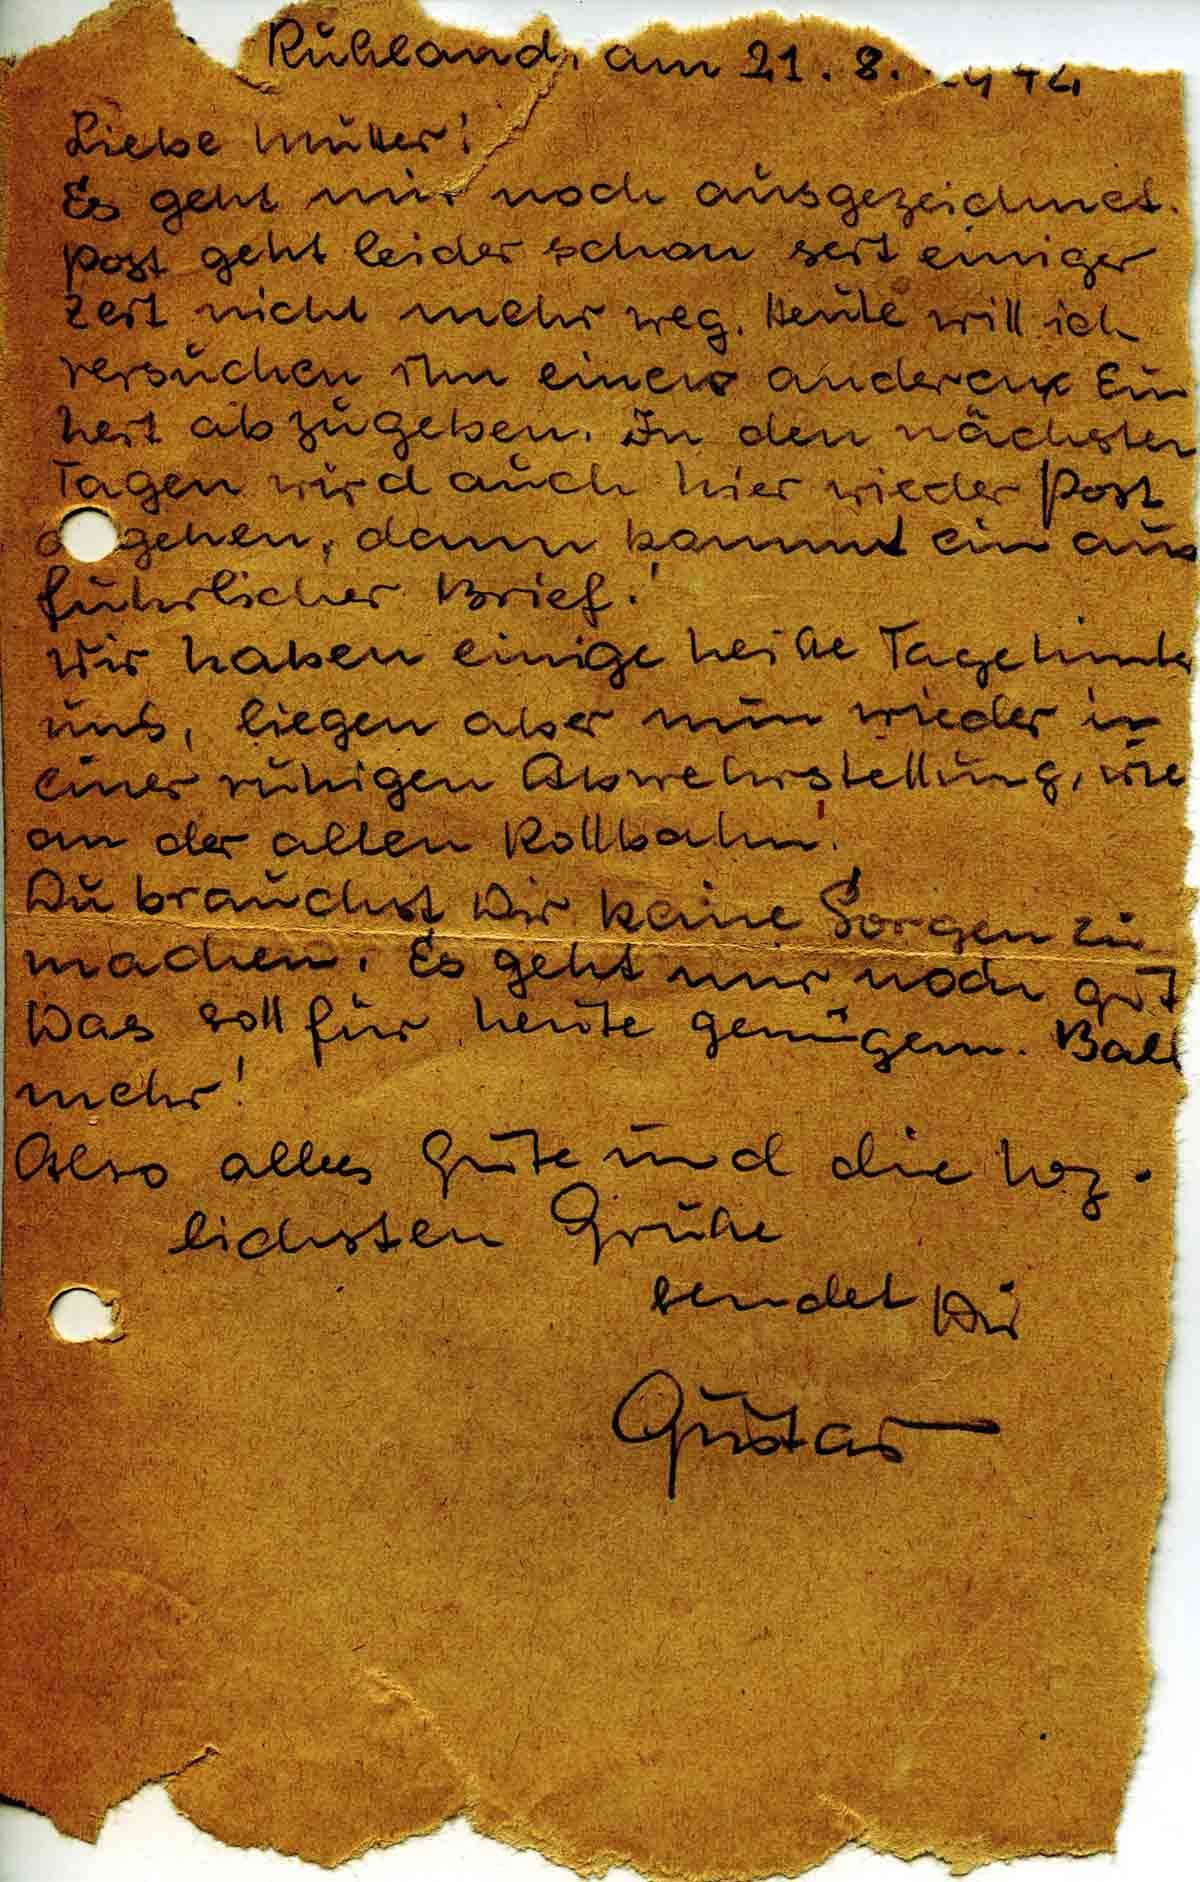 Rußland, am 21. 8. 1942
Liebe Mutter!
Es geht mir noch ausgezeichnet.
Post geht leider schon seit einiger
Zeit nicht mehr weg. Heute will ich
versuchen ihn einer anderen Ein
heit abzugeben. In den nächsten
Tagen wird auch hier wieder Post
gehen, dann kommt ein aus
führlicher Brief!
Wir haben einige heiße Tage hinter
uns, liegen aber nun wieder in
einer ruhigen Abwehrstellung, wie
an der alten Rollbahn!
Du brauchst Dir keine Sorgen zu
machen. Es geht mir noch gut
Das soll für heute genügen. Bald
mehr!
Also alles Gute und die herz-
lichsten Grüße
sendet Dir
Gustav